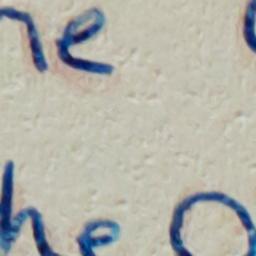 ne
he O